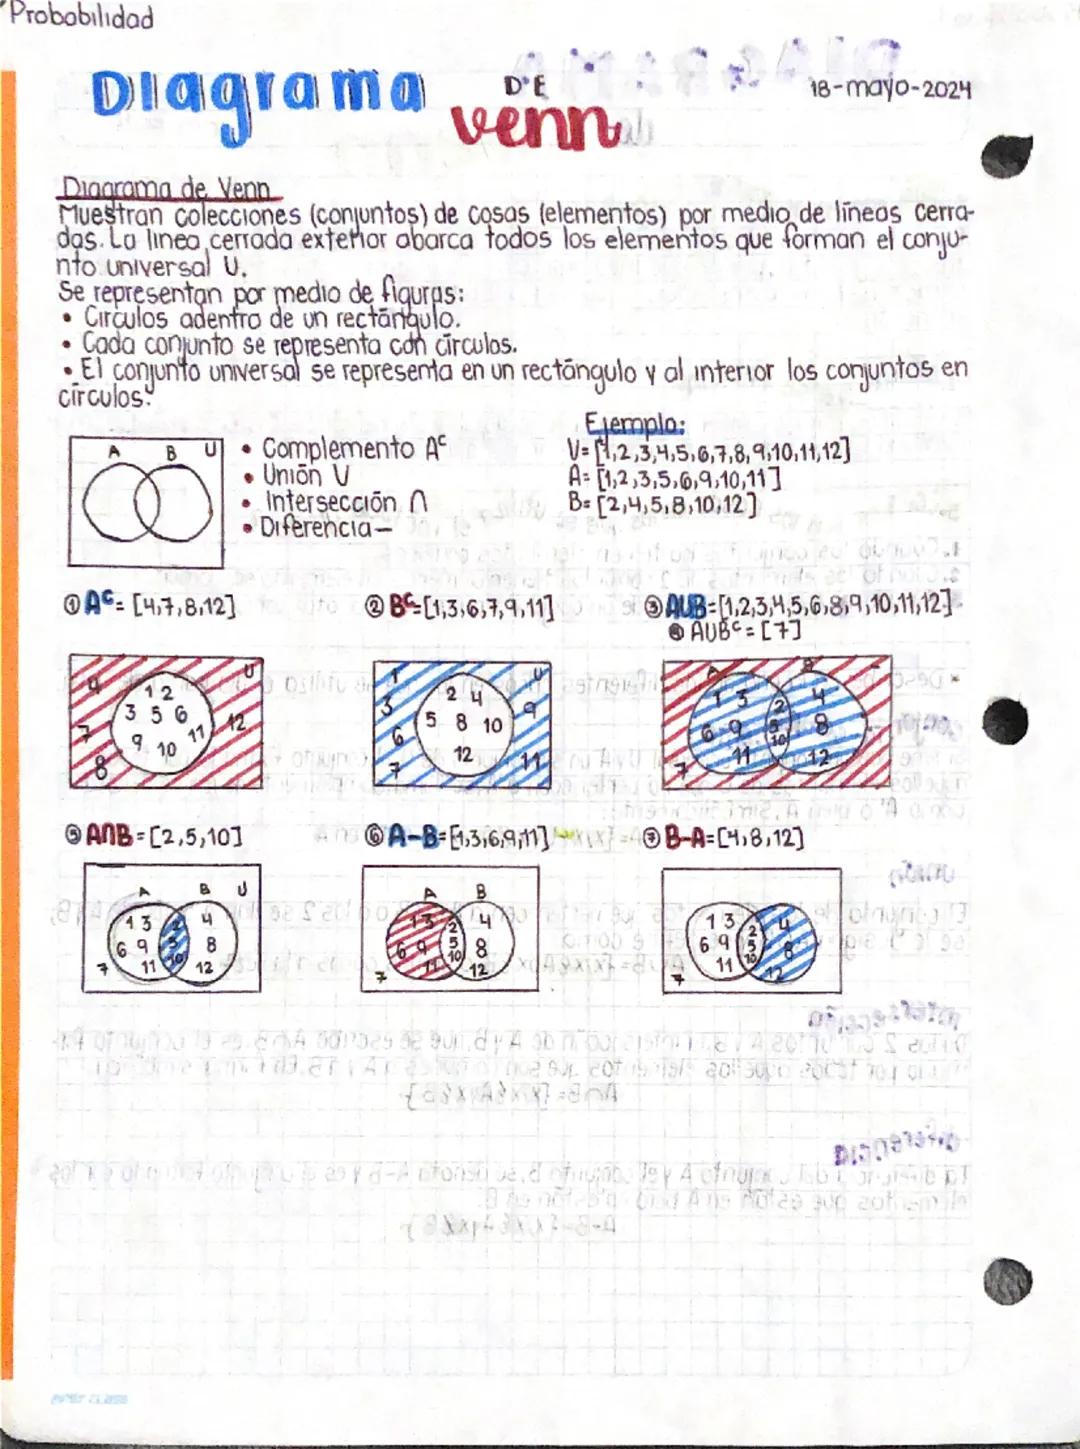 Probabilidad
Diagrama DE venn
18-mayo-2024
Diagrama de Venn
Muestran colecciones (conjuntos) de cosas (elementos) por medio de líneas cerra-
das. La linea cerrada exterior abarca todos los elementos que forman el conju-
nto universal U.
Se representan por medio de figuras:
• Circulos adentro de un rectángulo.
• Cada conjunto se representa con círculos.
• El conjunto universal se representa en un rectángulo y al interior los conjuntos en
círculos.
A B U
• Complemento Aᶜ
• Unión U
• Intersección ∩
• Diferencia —
Ejemplo:
U= [1,2,3,4,5,6,7,8,9,10,11,12]
A= [1,2,3,5,6,9,10,11]
B= [2,4,5,8,10,12]
① Aᶜ= [4,7,8,12]
② Bᶜ=[1,3,6,7,9,11]
③ AUB=[1,2,3,4,5,6,8,9,10,11,12]
④ AUBᶜ= [7]
U
4 1 2
3 5 6
7 12
9 10 11
8
1 U
3 2 4 9
6 5 8 10
7 12 11
A B
1 3 2 4
6 9 5 8
11 10 12
7
⑤ A∩B = [2,5,10]
⑥ A-B=[1,3,6,9,11]
⑦ B-A=[4,8,12]
A B U
1 3 2 4
6 9 5 8
7 11 10 12
A B
1 3 2 4
6 9 5 8
7 11 10 12
1 3 2 4
6 9 5 8
7 11 10 12